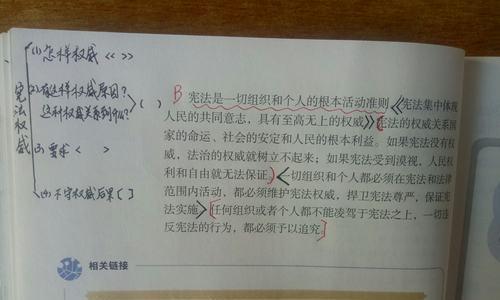 宪法权威
(1) 怎样权威 《 》
(2) 有这样权威原因?
这种权威关系到什么? ( )
(3) 要求 < >
(4) 不守权威后果 [ ]
B 宪法是一切组织和个人的根本活动准则。《宪法集中体现
人民的共同意志，具有至高无上的权威》(宪法的权威关系国
家的命运、社会的安定和人民的根本利益。如果宪法没有权
威，法治的权威就树立不起来；如果宪法受到漠视，人民权
利和自由就无法保证。)<一切组织和个人都必须在宪法和法律
范围内活动，都必须维护宪法权威，捍卫宪法尊严，保证宪
法实施>[任何组织或者个人都不能凌驾于宪法之上，一切违
反宪法的行为，都必须予以追究]
相关链接